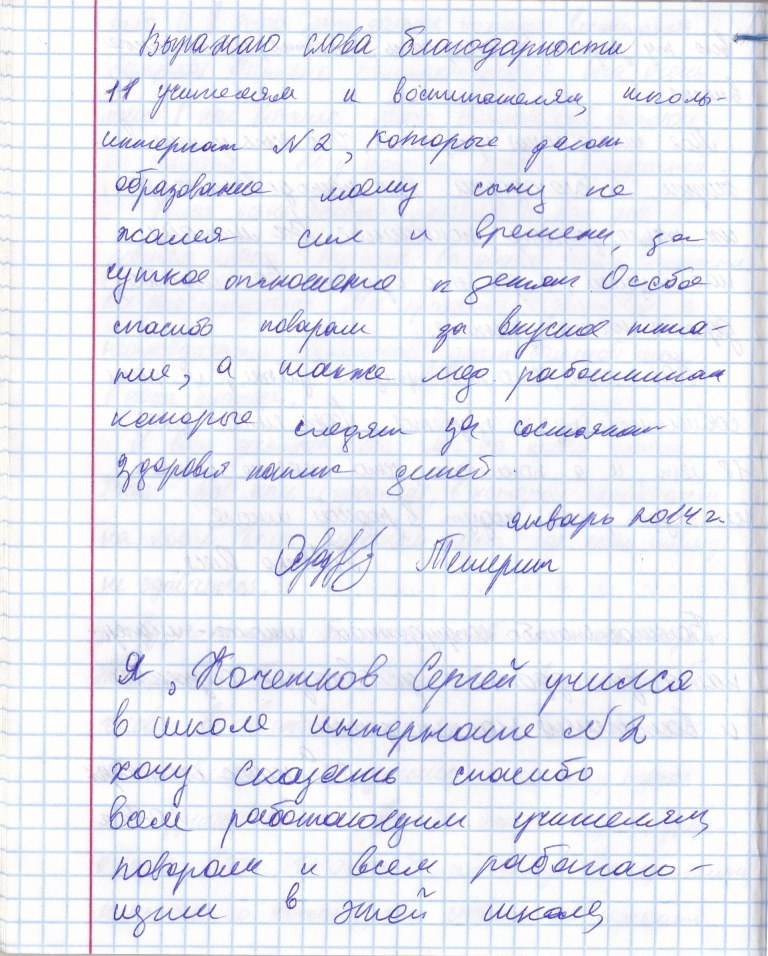 Выражаю слова благодарности
11 учителям и воспитателям, школы-
интернат N 2, которые дают
образование моему сыну не
жалея сил и времени, за
чуткое отношение к детям. Особое
спасибо поварам за вкусное пита-
ние, а также мед. работникам
которые следят за состоянием
здоровья наших детей.
январь 2014 г.
Я, Кочетков Сергей учился
в школе интернате N 2
хочу сказать спасибо
всем работающим учителям,
поварам и всем работаю-
щим в этой школе,